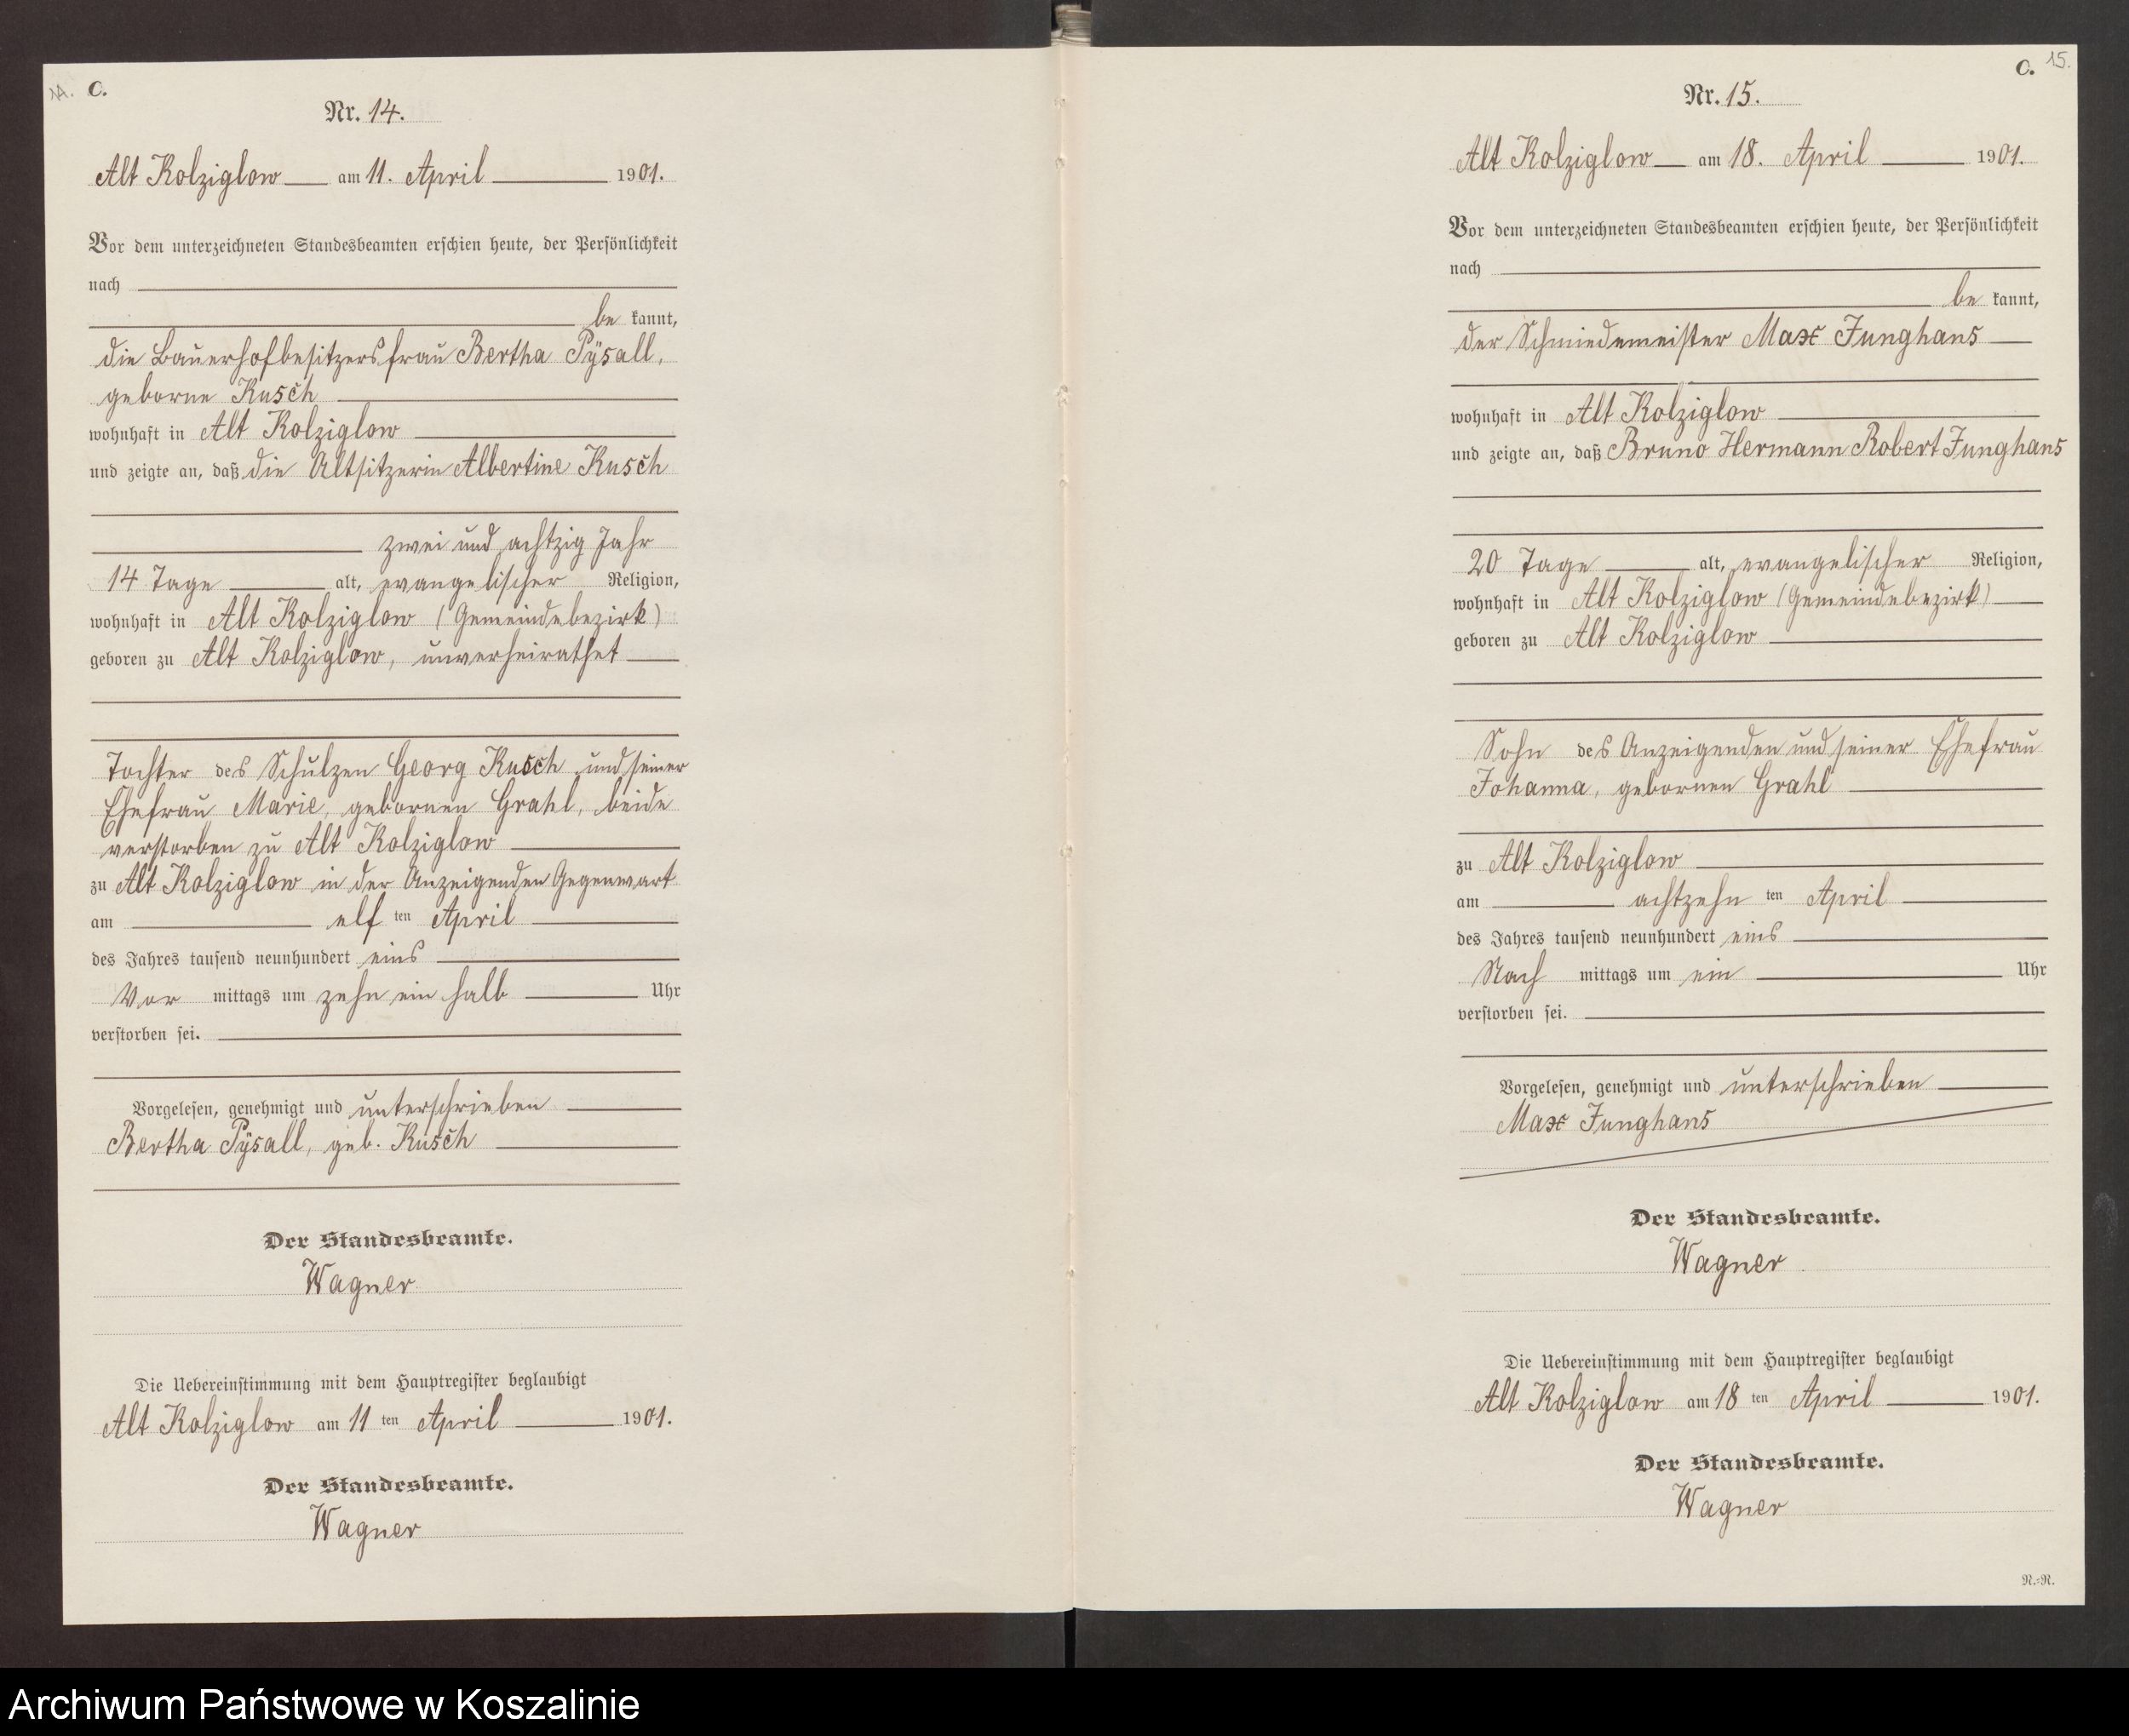 14.
C.
Nr. 14.
Alt Kolziglow am 11. April 1901.
Vor dem unterzeichneten Standesbeamten erschien heute, der Persönlichkeit
nach
be kannt,
die Bauerhofbesitzersfrau Bertha Pÿsall,
geborne Kusch
wohnhaft in Alt Kolziglow
und zeigte an, daß die Altsitzerin Albertine Kusch
zwei und achtzig Jahr
14 Tage alt, evangelischer Religion,
wohnhaft in Alt Kolziglow (Gemeindebezirk)
geboren zu Alt Kolziglow, unverheirathet
Tochter des Schulzen Georg Kusch und seiner
Ehefrau Marie, gebornen Grahl, beide
verstorben zu Alt Kolziglow
zu Alt Kolziglow in der Anzeigenden Gegenwart
am elf ten April
des Jahres tausend neunhundert eins
Vor mittags um zehn ein halb Uhr
verstorben sei.
Vorgelesen, genehmigt und unterschrieben
Bertha Pÿsall, geb. Kusch
Der Standesbeamte.
Wagner
Die Uebereinstimmung mit dem Hauptregister beglaubigt
Alt Kolziglow am 11 ten April 1901.
Der Standesbeamte.
Wagner
C.
15.
Nr. 15.
Alt Kolziglow am 18. April 1901.
Vor dem unterzeichneten Standesbeamten erschien heute, der Persönlichkeit
nach
be kannt,
der Schmiedemeister Max Junghans
wohnhaft in Alt Kolziglow
und zeigte an, daß Bruno Hermann Robert Junghans
20 Tage alt, evangelischer Religion,
wohnhaft in Alt Kolziglow (Gemeindebezirk)
geboren zu Alt Kolziglow
Sohn des Anzeigenden und seiner Ehefrau
Johanna, gebornen Grahl
zu Alt Kolziglow
am achtzehn ten April
des Jahres tausend neunhundert eins
Nach mittags um ein Uhr
verstorben sei.
Vorgelesen, genehmigt und unterschrieben
Max Junghans
Der Standesbeamte.
Wagner
Die Uebereinstimmung mit dem Hauptregister beglaubigt
Alt Kolziglow am 18 ten April 1901.
Der Standesbeamte.
Wagner
N.=N.
Archiwum Państwowe w Koszalinie